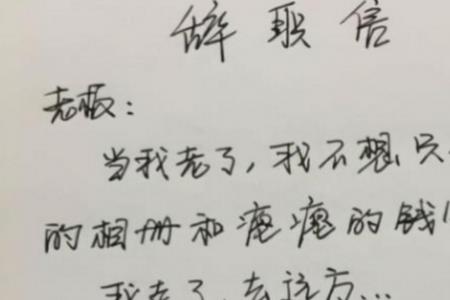 辞职信
老板：
当我老了，我不想只
的相册和瘪瘪的钱
我走了，去远方...